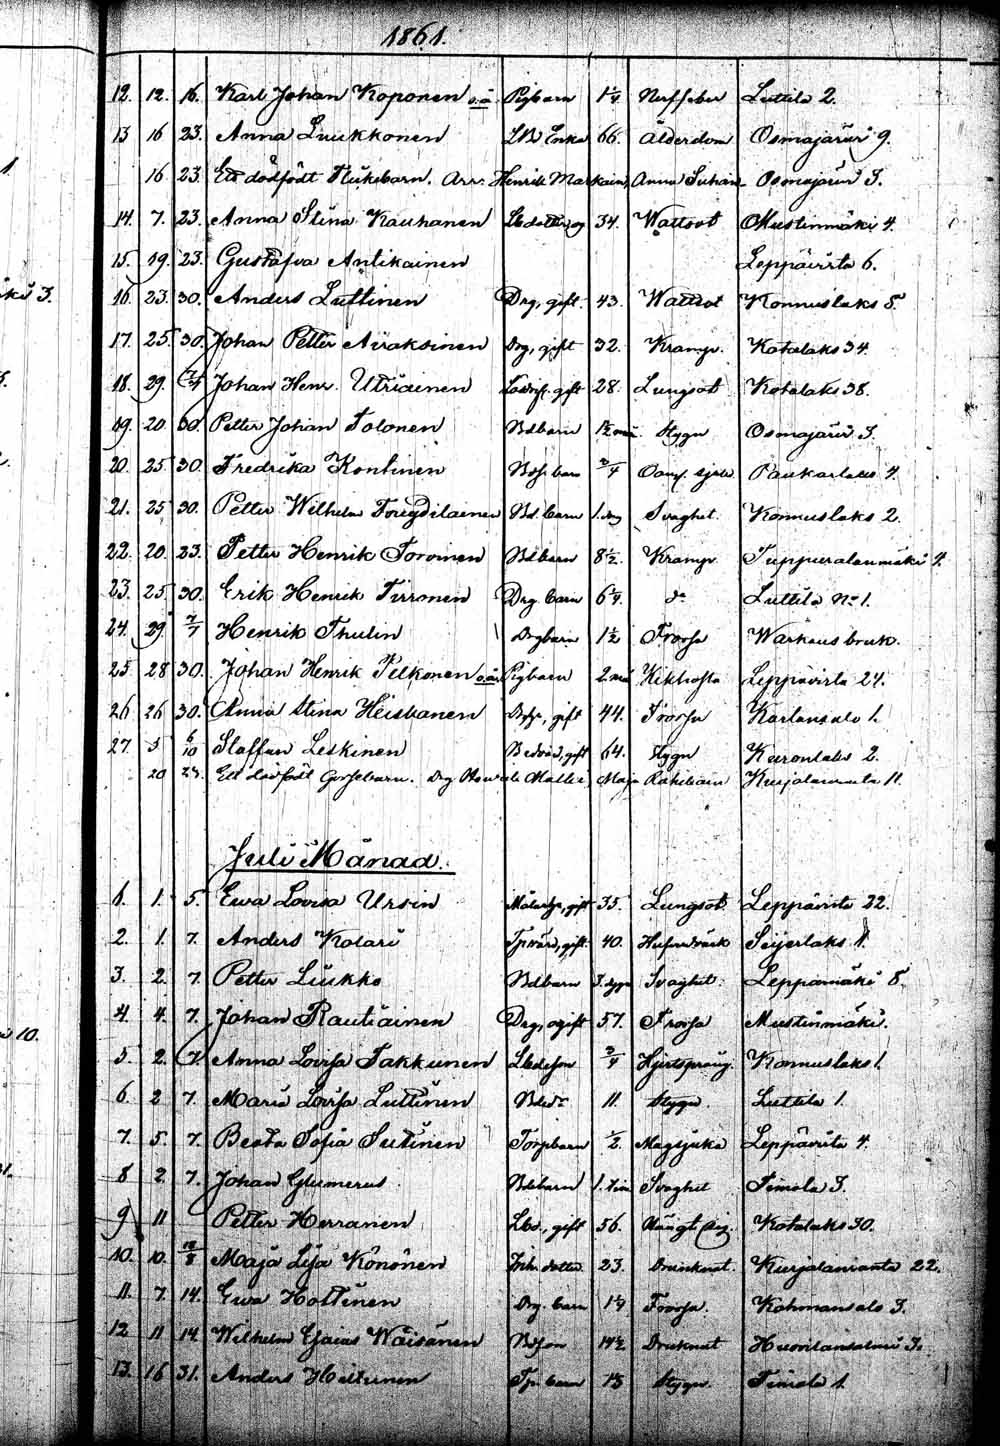 1861.
12. 12. 16. Karl Johan Koponen o.ä. Pigbarn 1 1/4 Nerffeber Luttila 2.
13 16 23. Anna Luukkonen Enka 66. Ålderdom Osmajärvi 9.
16 23. Ett dödfödt Flickebarn. Arr. Henrik Anna Osmajärvi 3.
14. 7. 23. Anna Stina Kauhanen 34. Wattsot Mustinmäki 4.
15. 19. 23. Gustafva Antikainen Leppävirta 6.
16. 23. 30. Anders Luttinen Drg, gift. 43. Wattsot Konnuslaks 8.
17. 25. 30. Johan Petter Airaksinen Drg, gift 32. Kramp. Kotalaks 34.
18. 29. Johan Henr. Utriainen gift 28. Lungsot Kotalaks 38.
19. 20. 30. Petter Johan Tolonen Bdbarn Stygn Osmajärvi 3.
20. 25. 30. Fredrika Kontinen barn 3/4 Paukarlaks 4.
21. 25 30. Petter Wilhelm Bd barn 1. dag Svaghet. Konnuslaks 2.
22. 20. 23. Petter Henrik Toroinen Bdbarn 8 1/2. Kramp
23. 25. 30. Erik Henrik Tirronen Drg barn 6 1/4. do Luttila No 1.
24. 29. 7/7 Henrik Thulin Drgbarn 1 1/2 Frossa Warkaus bruk.
25 28 30. Johan Henrik Pelkonen o.ä. Pigbarn 2. mån Kikhosta Leppävirta 24.
26 26 30. Anna Stina Heiskanen gift 44. Frossa Karlansalo 1.
27. 5 6/10 Staffan Leskinen gift 64. Stygn Kuronlaks 2.
20 23. Ett dödfödt Gossebarn. Drg Maja Kurjalanranta 11.
Juli Månad.
1. 1. 5. Ewa Lovisa Ursin gift 35. Lungsot. Leppävirta 22.
2. 1. 7. Anders Kolari gift 40. Hufvudvärk 1.
3. 2. 7. Petter Liukko Bdbarn 3. dygn Svaghet. Leppämäki 8.
4. 4. 7. Johan Rautiainen Drg, ogift 57. Frossa Mustinmäki.
5. 2. 7. Anna Lovisa Takkunen 3/4 Hjertsprång. Konnuslaks 1.
6. 2 7. Maria Lovisa Luttinen 11. Stygn. Luttila 1.
7. 5. 7. Beata Sofia Sutinen Torpbarn 1/2. Magsjuka Leppävirta 4.
8 2. 7. Johan Glumerus Bdebarn 1. tim Svaghet Timola 3.
9 11 Petter Herranen Lbd., gift 56. Kotalaks 30.
10. 10. Maja Lisa Könönen Inh. dotter 23. Drunknat. Kurjalanranta 22.
11. 7. 14. Ewa Hottinen Drg. barn 1 1/4 Frossa. Kohmansalo 3.
12 11 14. Wilhelm Esaias Wäisänen Bdson 14 1/2 Drunknat 3.
13. 16 31. Anders Hiltunen Tp. barn Stygn. Timola 1.